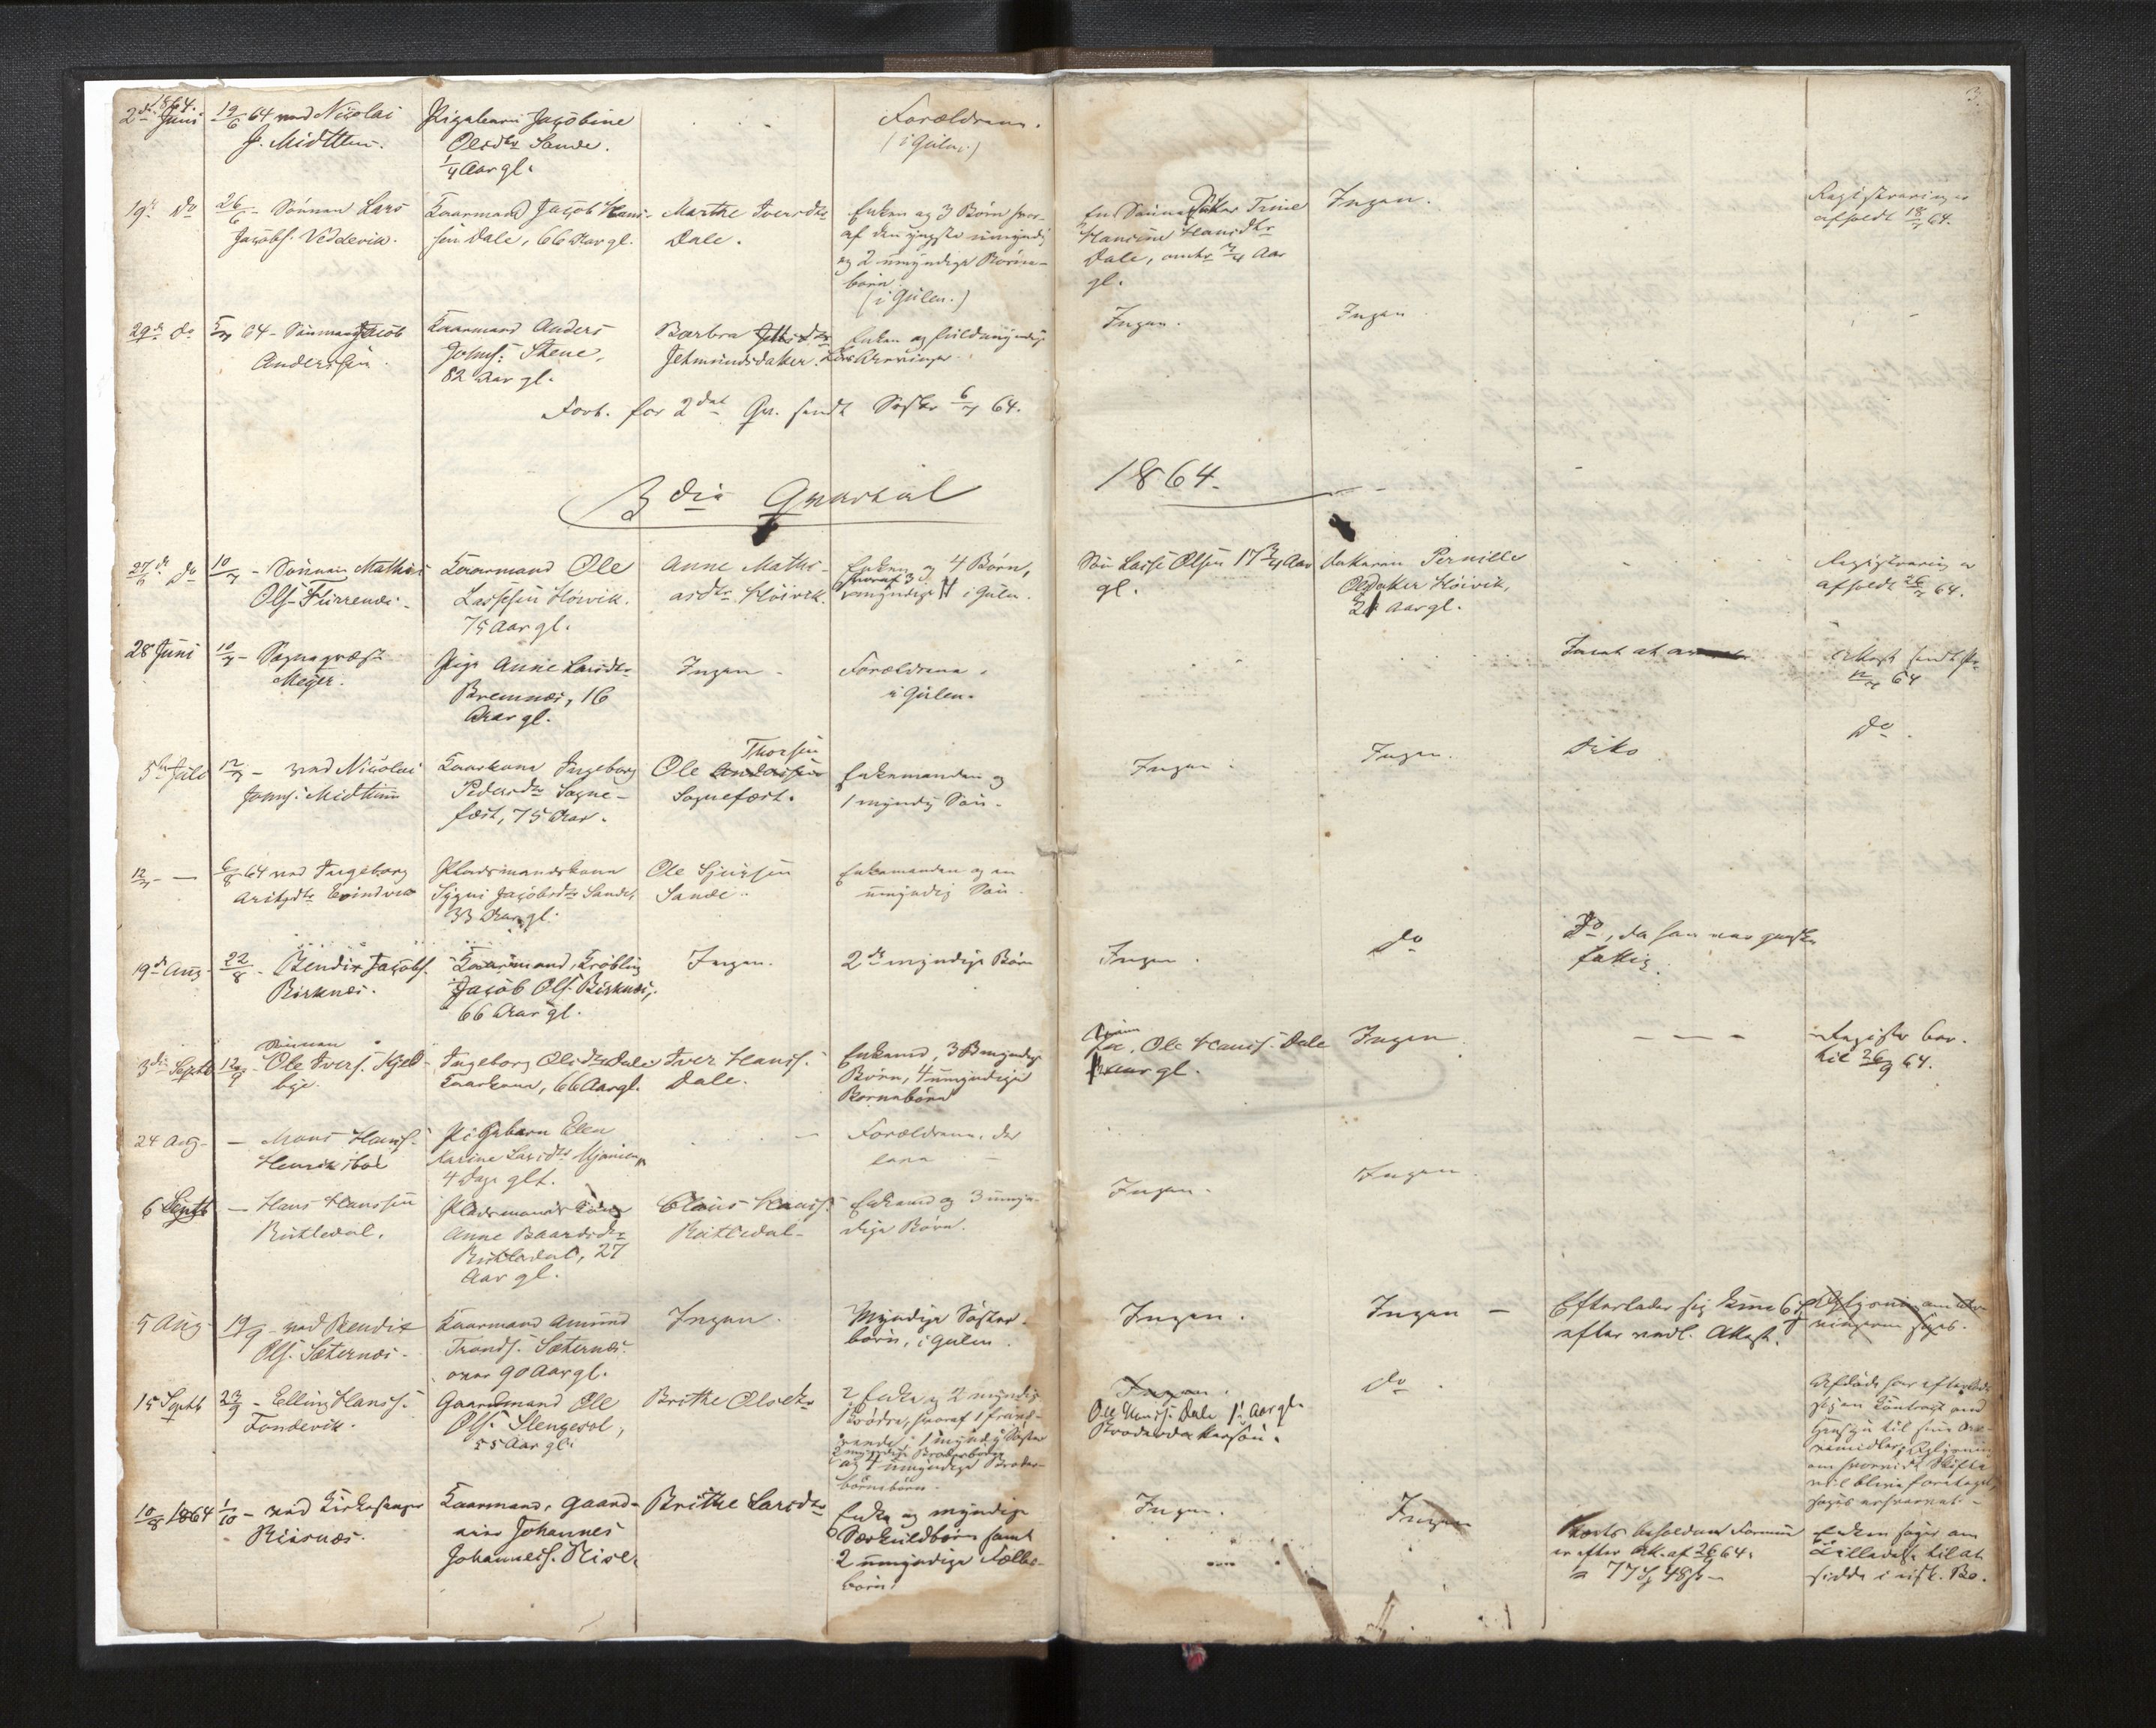 3.
1864.
2de Juni
19/6 64 ved Nicolai
J. Midttun.
Pigebarn Jacobine
Olsdtr Sande.
1/4 Aar gl.
Forældrene.
(i Gulen.)
19de do
26/6 - Sønnen Lars
Jacobs. Veddevik.
Kaarmand Jacob Hans-
sen Dale, 66 Aar gl.
Marthe Iversdtr
Dale.
Enken og 3 Børn hvor-
af den yngste umyndig
og 2 umyndige Børne-
børn
(i Gulen.)
En Sønne Datter Trine
Hansine Hansdtr
Dale, omtr 3/4 Aar
gl.
Ingen.
Registreringen
afholdt 18/7 64.
29de do
5/7 64 - Sønnen Jacob
Anderssen.
Kaarmand Anders
Johns. Stene,
82 Aar gl.
Barbra
Jetmundsdatter.
Enken og fuldmyndige
Arvinger.
Ingen.
Ingen
Fort. for 2det Qv. sendt Sorskr 6/7 64.
3die Quartal
1864.
27de/6 do
10/7 - Sønnen Mathis
Ols. Furrenes.
Kaarmand Ole
Lassesen Høivik.
75 Aar gl.
Anne Mathi-
asdtr. Høivik.
Enken og 4 Børn,
hvoraf 3
umyndige i Gulen.
Søn Lasse Olsen 17 3/4 Aar
gl.
datteren Pernille
Olsdatter Høivik,
Aar gl.
Registrering er
afholdt 26/7 64.
28 Juni
10/7 - Sogneprest
Meyer.
Pige Anne Larsdtr
Bremnes, 16
Aar gl.
Ingen -
Forældrene.
i Gulen.
Intet at
Attest sendt
64
5te Juli
12/7 - ved Nicolai
Johns. Midttun
Kaarkone Ingeborg
Pedersdtr Sogne-
fest, 75 Aar.
Thorsen
Ole
Sognefest.
Enkemanden og
1 myndig Søn.
Ingen.
Ingen.
Dito
do.
12/7 -
6/8 64 ved Ingeborg
Eivindvik
Pladsmandskone
Sygni Jacobsdtr Sande,
33 Aar gl.
Ole Sjursen
Sande.
Enkemanden og en
umyndig Søn.
19de Aug.
22/8 - Bendix Jacobs.
Birknes.
Kaarmand, Krøbling
Jacob Ols. Birknes,
66 Aar gl.
Ingen.
2de myndige Børn
Ingen.
do
Do, da han var ganske
fattig.
3die Septb
12/9 - Sønnen
Ole Ivers. Kjell-
bye.
Ingeborg Olsdtr Dale,
Kaarkone, 66 Aar gl.
Iver Hanss.
Dale.
Enkemd, 3 myndige
Børn, 4 umyndige
Børnebørn
Ole Hanss. Dale
Aar gl.
Ingen
- - -
Register bor.
til 26/9 64.
24 Aug.
- Mons Hans.
Henriksbøe
Pigebarn Ellen
Karine Larsdtr Mjømen,
4 Dage glt.
Forældrene, der
leve
6 Septb
- Hans Hanssen
Rutledal.
Pladsmands Kone
Anne Baardsdtr
Rutledal, 27
Aar gl.
Claus Hanss.
Rutledal.
Enkemd og 3 umyn-
dige Børn.
Ingen.
Ingen.
5 Aug.
19/9 - ved Bendix
Ols. Sæternes.
Kaarmand Amund
Tronds. Sæternes.
over 90 Aar gl.
Ingen.
Myndige Søster-
børn, i Gulen.
Ingen.
Ingen -
Efterlader sig kun 6
efter vedl. Attest.
15 Septb
23/9 - Elling Hanss.
Fondevik.
Gaardmand Ole
Ols. Slengesol,
55 Aar gl.
Brithe Olsdtr
Enke og 2 myndige
Brødre, hvoraf 1 fravæ-
rende, 1 myndig Søster
og 4 umyndige Broder-
børnsbørn.
Ingen.
Ole Hanss. Dale 1 1/2 Aar gl.
Broderdattersøn.
do.
Afdøde har efterladt
sig en Contract med
Hensyn til sine
om hvorvidt Skifte
vil blive foretaget,
10/8 1864
1/10 - ved Kirkesanger
Riisnæs.
Kaarmand, Gaard-
eier Johannes
Johanness. Rise.
Brithe Larsdtr
Enke og myndige
Særkuldbørn samt
2 umyndige Fælles-
børn.
Ingen.
Ingen
beholdne Formue
er efter Att. af 26/9 64.
77 48
Enken søger om
Tilladelse til at
sidde i uisk. Bo.